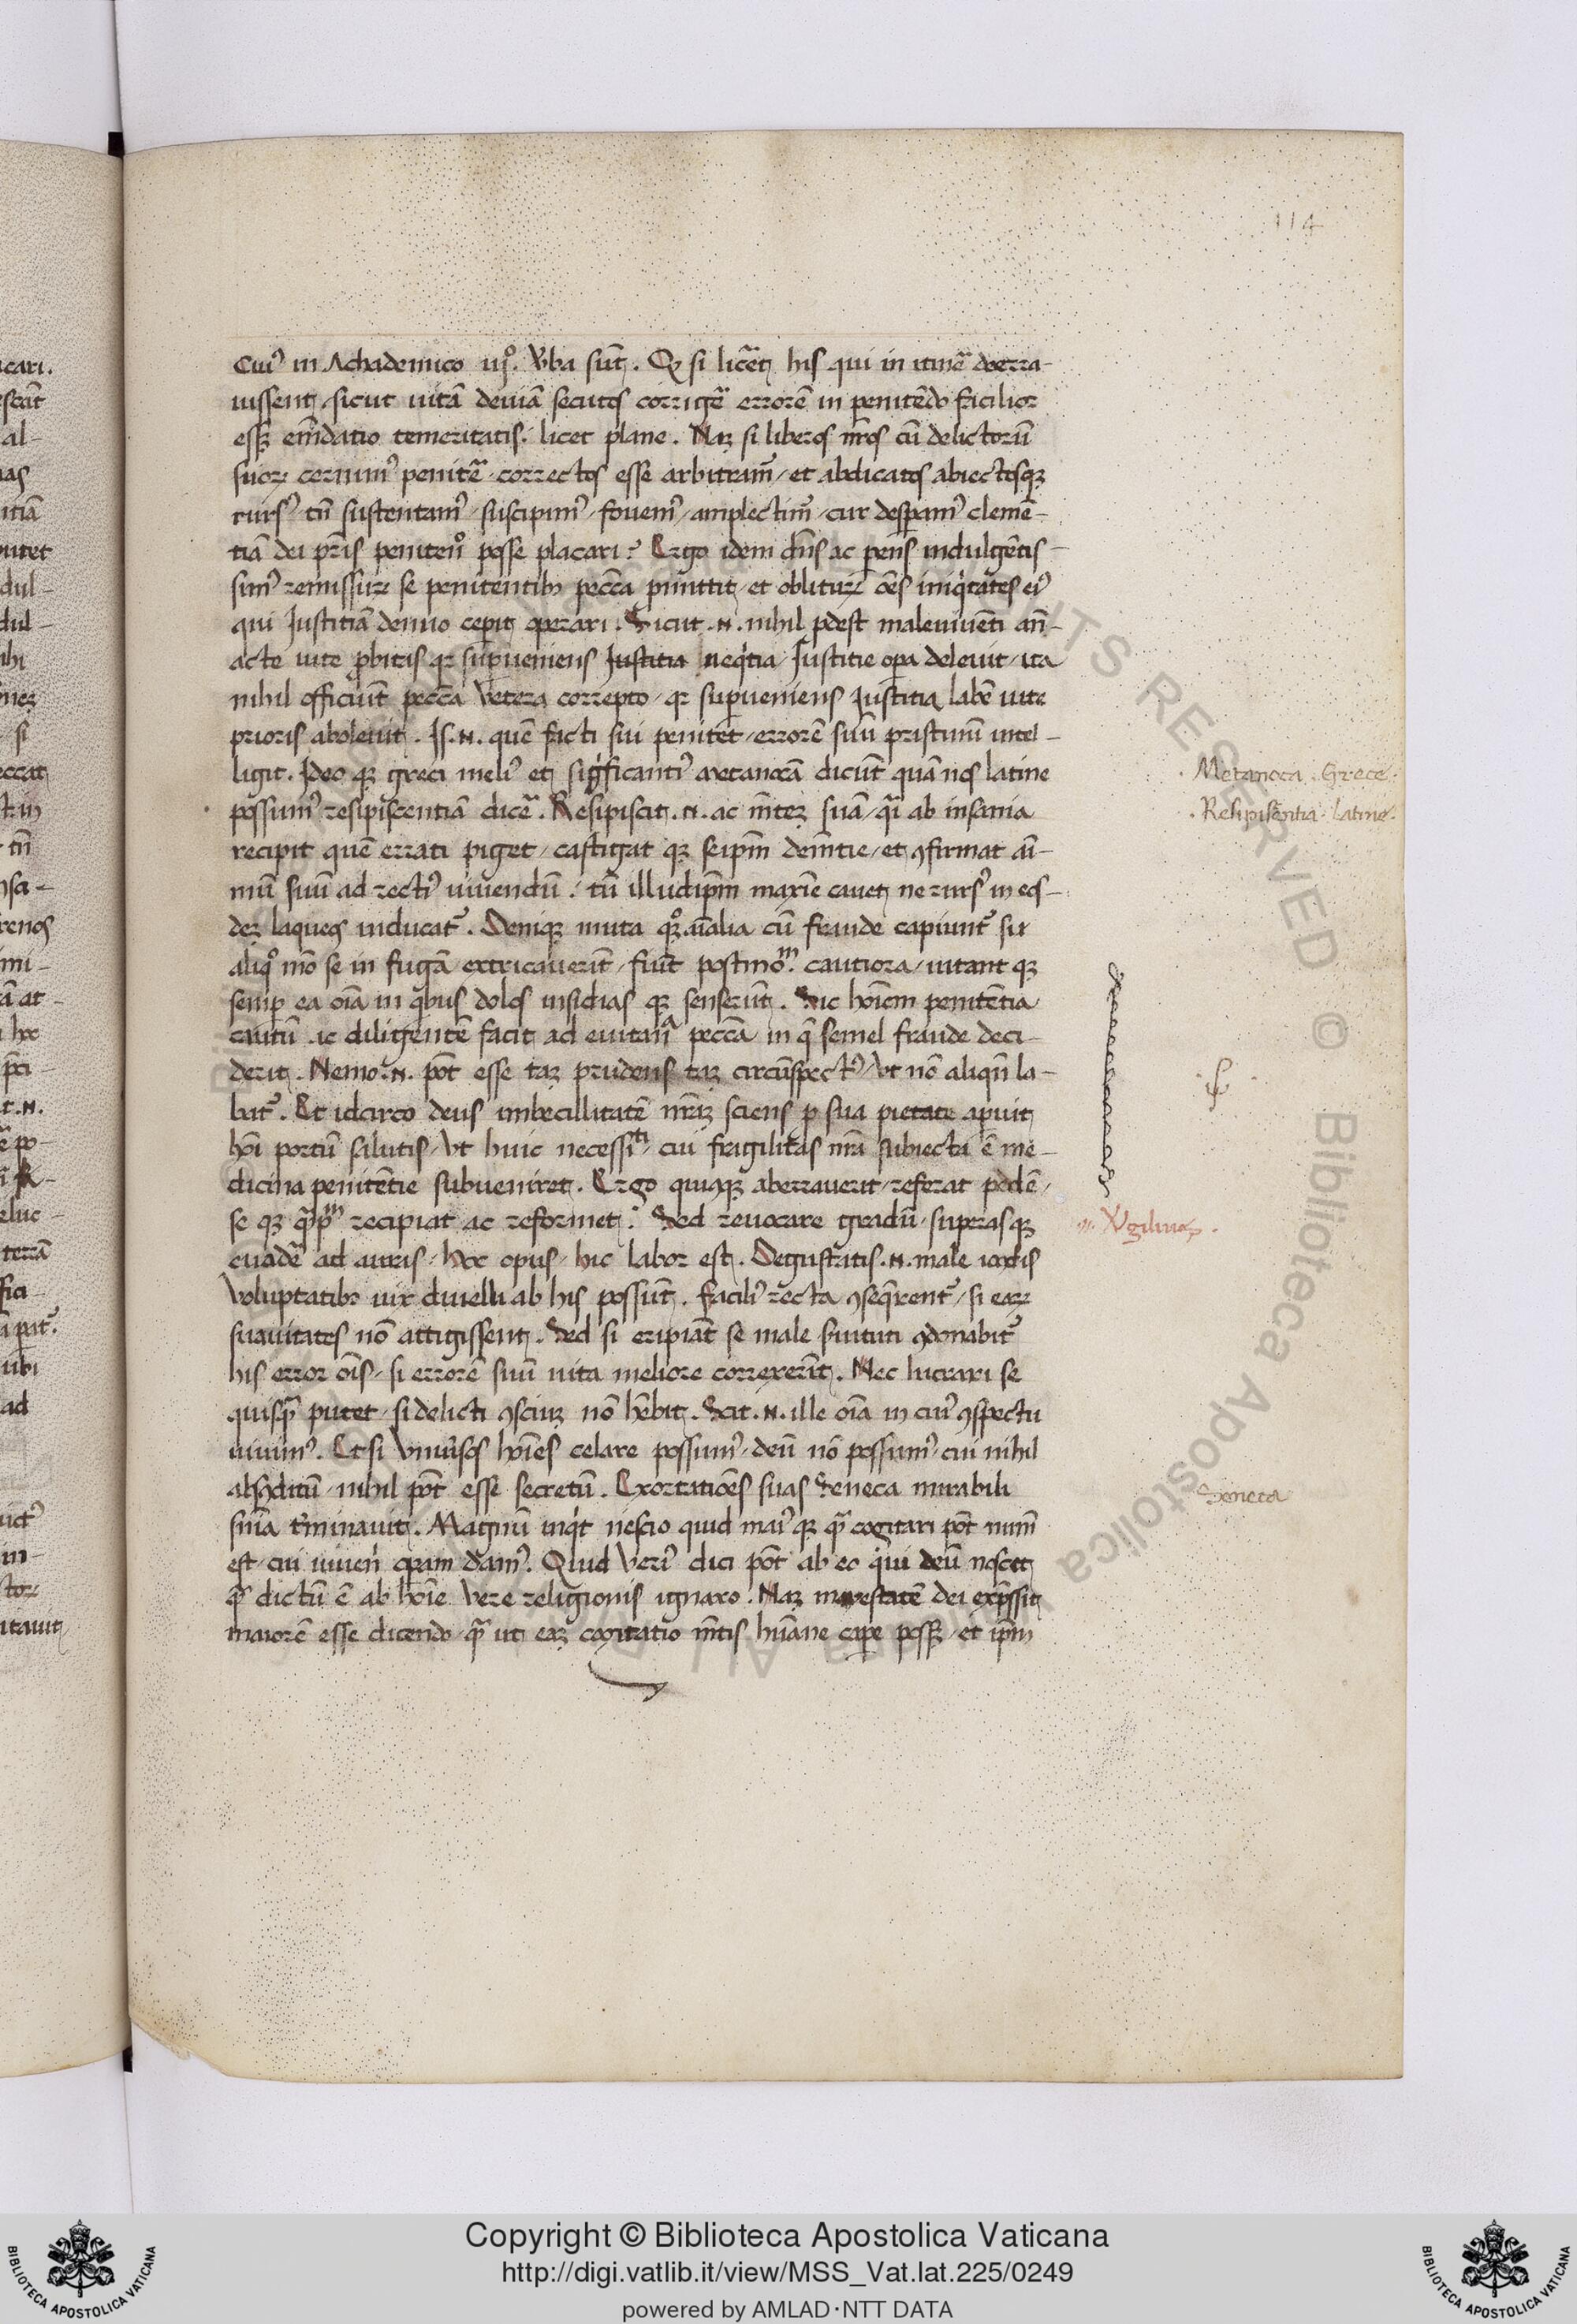 114
Cuiꝰ in Achademico iijͦ. v̄ba sūt. Qꝫ si licēt his qui in itiñe deerra-
uissent / sicut uitā deuiā secutos corrigē errorē in penitēdo facilior
essꝫ em̄datio temeritatis. licet plane. Naꝫ si liberos nr̄os cū delictorū
suoꝝ cernimꝰ penitē / correctos esse arbitramr̄ / et abdicatos abiectosqꝫ
rursꝰ tn̄ sustentamꝰ / suscipimꝰ / fouemꝰ / amplectimr̄ / cur desꝑamꝰ clemē-
tiā dei pr̄is penitenꝰ posse placari? Ergo idem dn̄s ac pens indulgētis-
simꝰ remissuꝝ se penitentibꝫ pecc̄a ꝓmittit / et oblituꝝ oēs iniqͥtates eiꝰ
qui Iustitiā denuo cepit operari. Sicut .N. nihil ꝓdest male uiuēti an̄-
acte uite ꝓbitas qꝛ suꝑueniens Iustitia neqͥtia / Iustitie oꝑa deleuit / ita
nihil officiūt pecc̄a vetera correpto / qꝛ suꝑueniens Iustitia labē uite
prioris aboleuit. Is .N. quē facti sui penitet / errorē suū pristinū intel-
ligit. Ideo qꝫ greci meliꝰ et sigͥficantiꝰ metanoeā dicūt quā nos latine
possumꝰ resipiscentiā dicē. Resipiscit .N. ac mēteꝫ suā / qͣi ab insania
recipit quē errati piget / castigat qꝫ seip̄m dem̄tie / et ꝯfirmat ai-
mū suū ad rectiꝰ uiuendū. tū illud ip̄m maxīe cauet ne rursꝰ in eos-
deꝫ laqueos inducatᷣ. Deniqꝫ muta qꝫͦ. aīalia cū fraude capiuntᷣ si
aliqͦ mō se in fugā extricauerīt / fiūt postmoͫ. cautiora / uitant qꝫ
semꝑ ea oīa in qͥbus dolos insidias qꝫ senserūt. Sic hoīem penitētia
cautū ac diligentē facit ad euitanͣ pecc̄a in qͥ semel fraude deci-
derit. Nemo .N. pōt esse taꝫ prudens taꝫ circūspectꝰ / vt nō aliqn̄ la-
batᷣ. Et idcirco deus imbecillitatē nr̄aꝫ sciens ꝓ sua pietate aꝑuit
hoī portū salutis / vt huic necessiᵗⁱ / cui fragilitas nr̄a subiecta ē me-
dicina penitētie subueniret. Ergo quiqꝫ aberrauerit / referat pedē /
se qꝫ qͣpͫ recipiat ac reformet. Sed reuocare gradū / superas qꝫ
euadē ad auras / hoc opus / hic labor est. Degustatis .N. male iocūdis
voluptatibꝫ uix diuelli ab his possūt. faciliꝰ recta ꝯseqͥrentᷣ / si eaꝝ
suauitates nō attigissent. Sed si eripiāt se male s̄uituti ꝯdonabitᷣ
his error oīs / si errorē suū uita meliore correxerīt. Nec lucrari se
quisqͣ putet / si delicti ꝯsciuꝫ nō hēbit. Scit .N. ille oīa in cuiꝰ ꝯspectu
uiuimꝰ. Et si vniūsos hoīes celare possumꝰ / deū nō possumꝰ / cui nihil
absꝯditū / nihil pōt esse secretū. Exortatiōes suas Seneca mirabili
sn̄ia t̄minauit. Magnū inqͥt nescio quid maiꝰ qꝫ qͣ cogitari pōt numē
est / cui uiuenͥ operam damꝰ. Quid veriꝰ dici pōt ab eo qui deū nosc̄et
qͣ dictū ē ab hoīe vere religionis ignaro. Naꝫ maiestatē dei exp̄ssit
maiorē esse dicendo / qͣ ut eaꝫ cogitatio mētis hūane caꝑe possꝫ / et ip̄m
Metanoea Grece.
Resipiscentia. Latine.
Virgilius.
Seneca
Copyright © Biblioteca Apostolica Vaticana
http://digi.vatlib.it/view/MSS_Vat.lat.225/0249
powered by AMLAD·NTT DATA